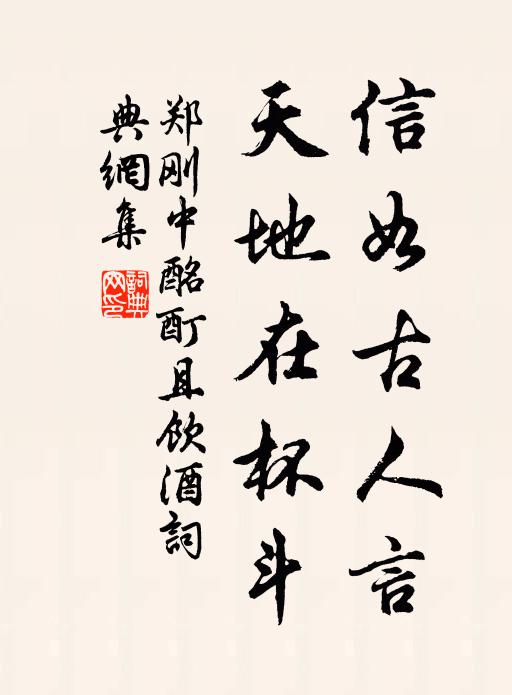 信如古人言
天地在杯斗
郑刚中酩酊且饮酒詞
典網集
詞典網印